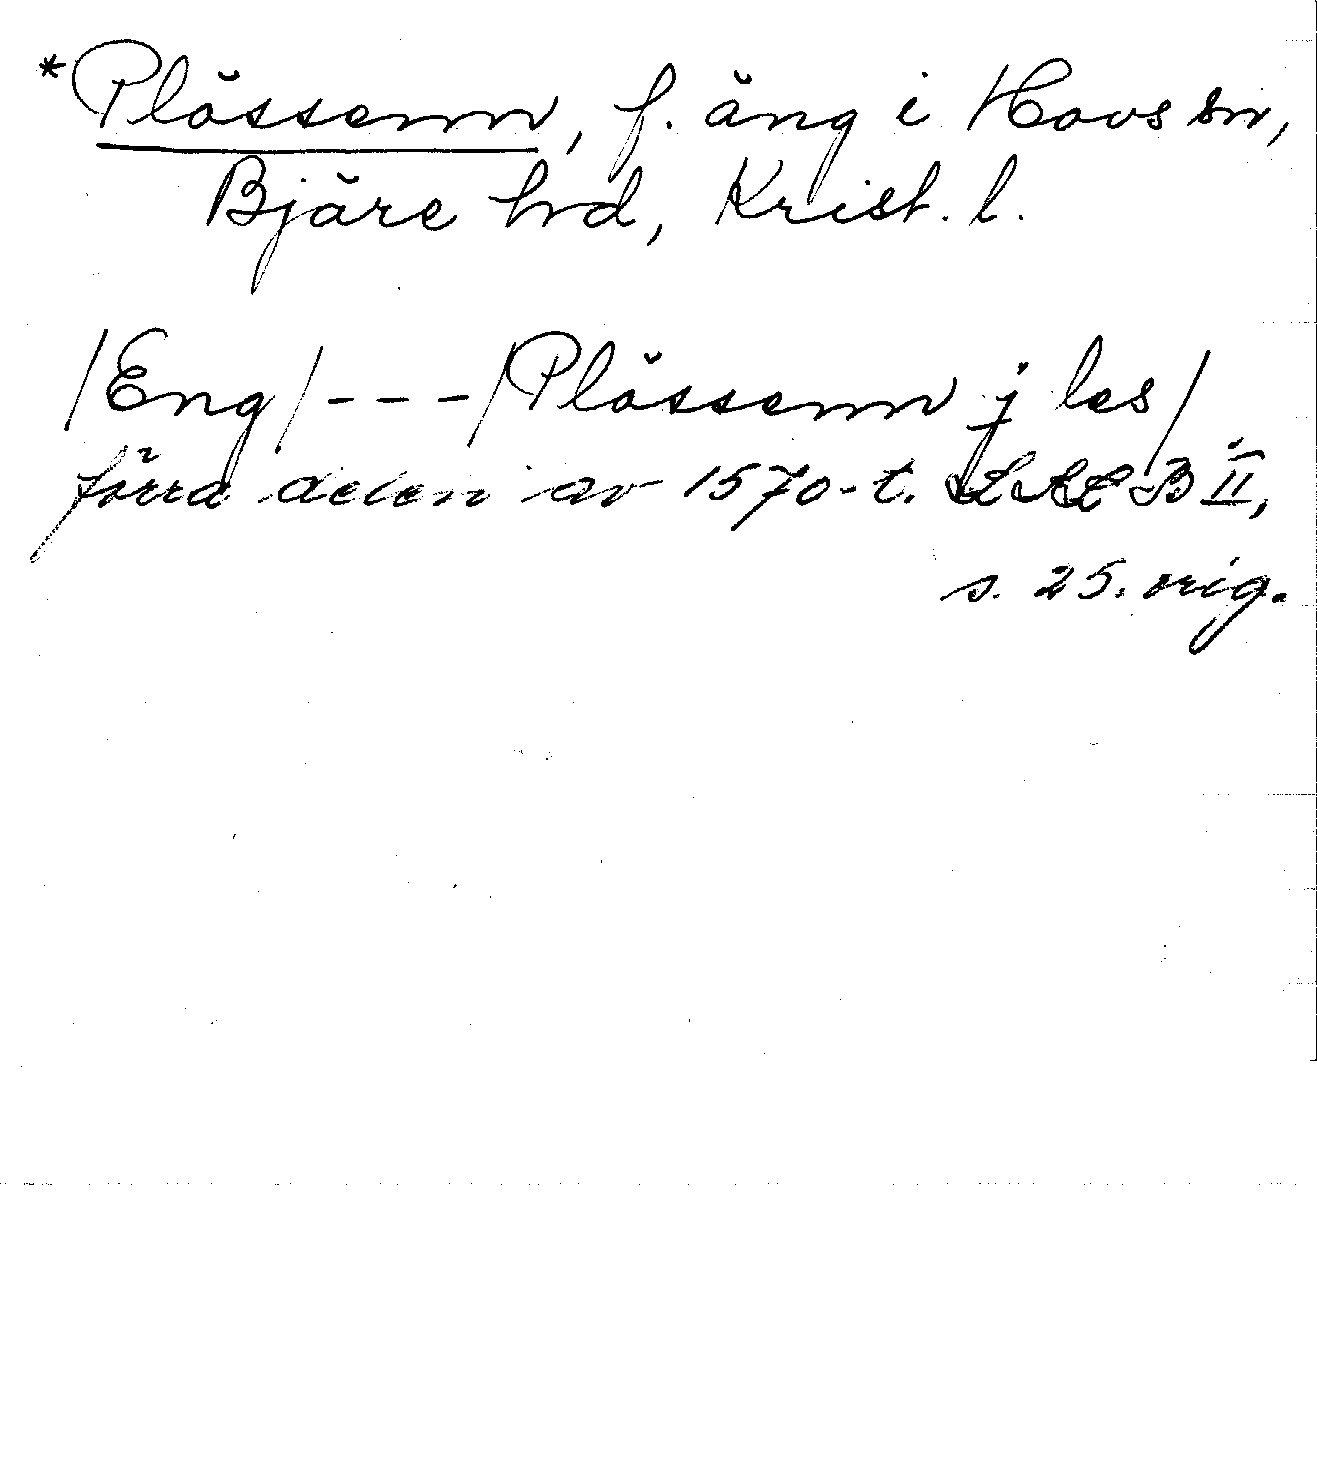 *Plössenn, f. äng i Hovs sn,
Bjäre hd, Krist. l.
/Eng/ --- /Plössenn j les/
förra delen av 1570-t. LLLB II,
s. 25. orig.